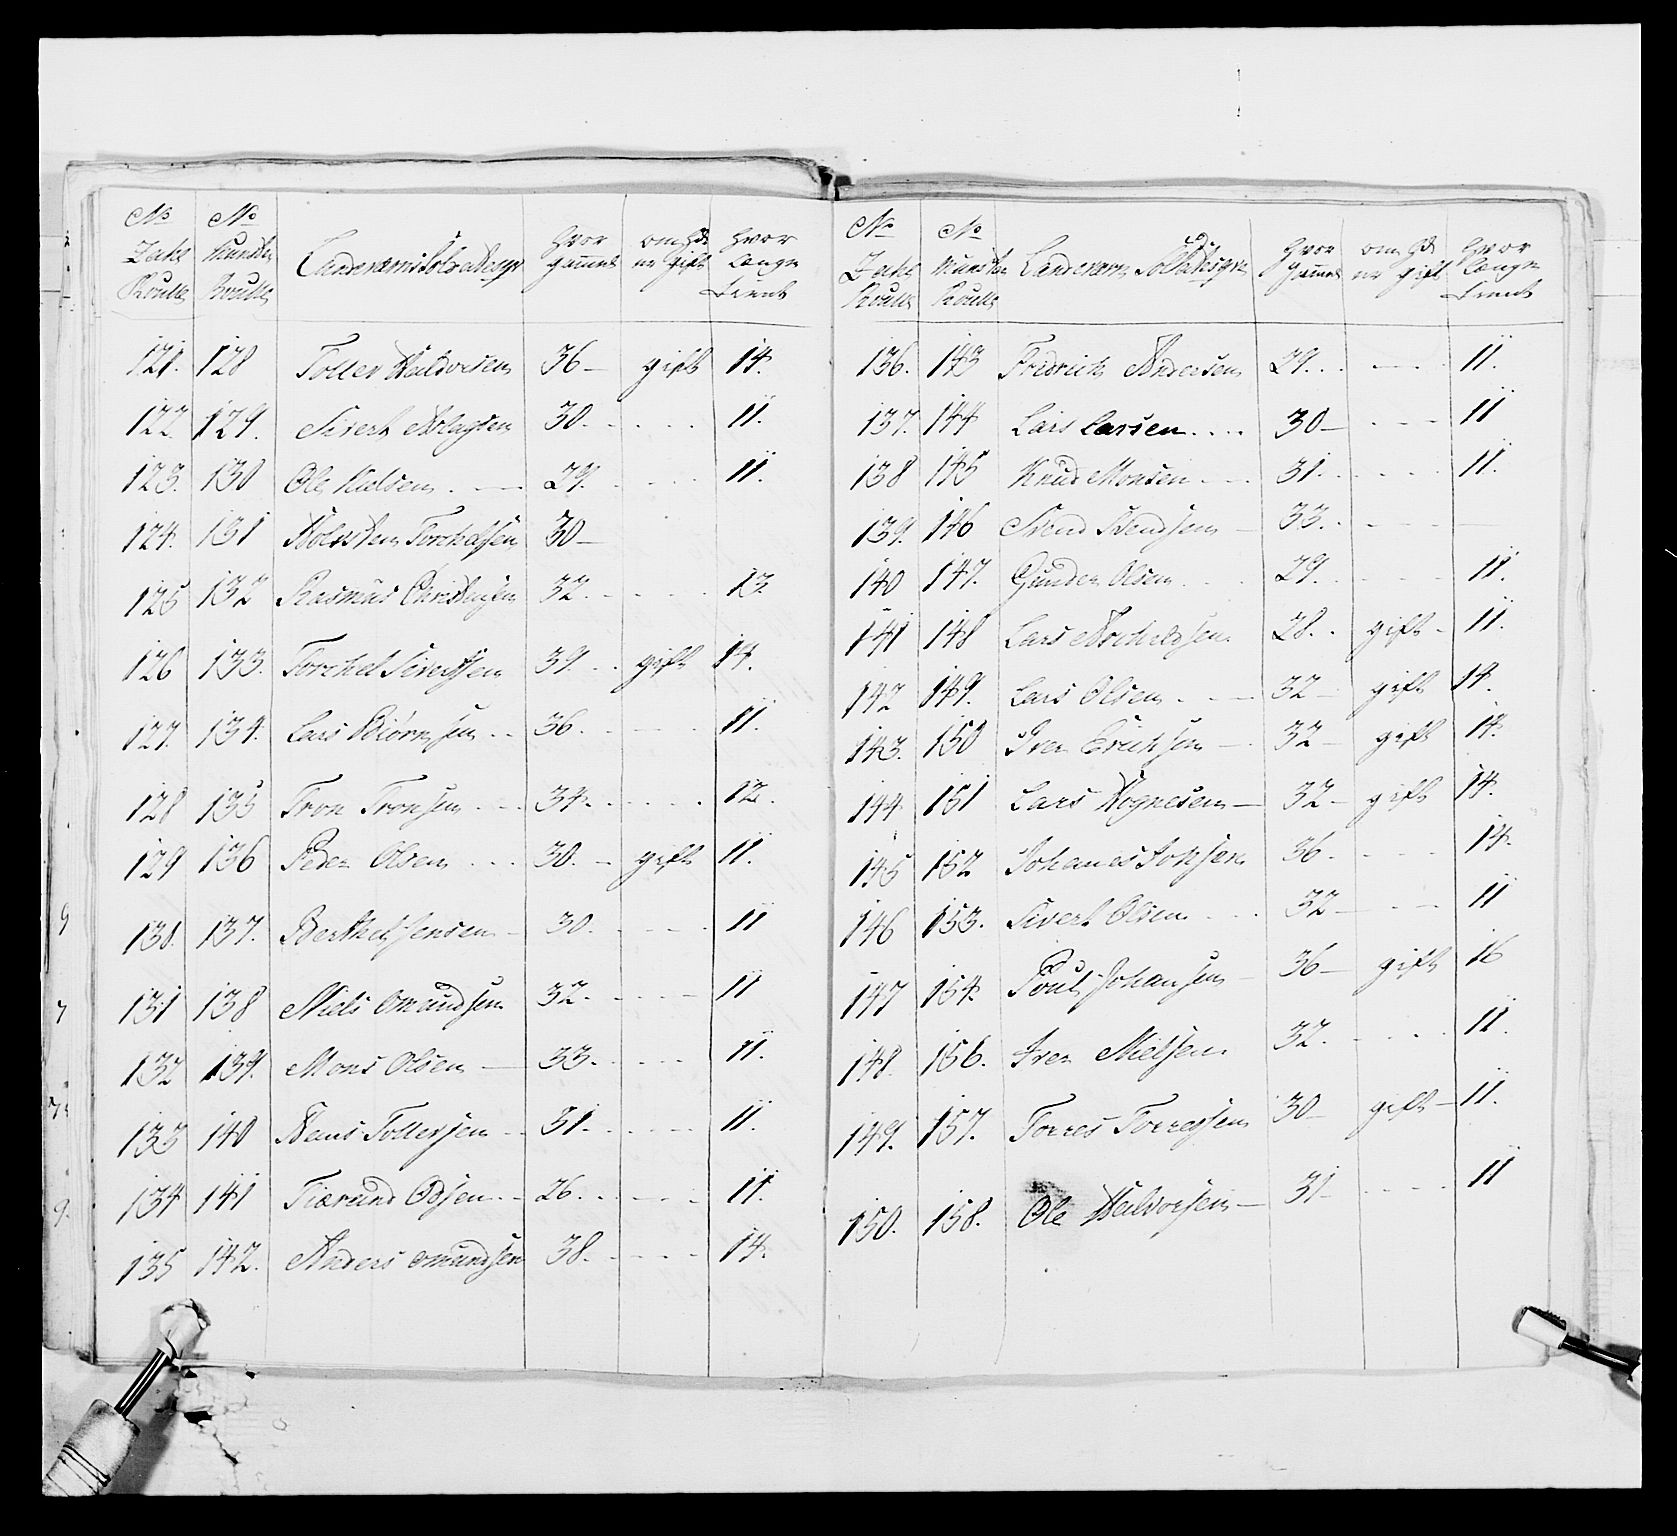 No No Hvor om de Hvor
Roulle Roulle gammel er gift Længe tient
121. 128 Toller Haldorsen 36 — gift 14.
122. 129. Sivert Aslagsen 30. . . . . 11.
123. 130 Ole 29. . . . . 11.
124. 131 Torchelsen 30 —
125 132 Rasmus Christensen 32. . . . . 13.
126 133. Torchel Sivertsen 39. . . gift 14.
127. 134. Lars Biørnsen . . 36. . . . . 11.
128 135 Tron Tronsen . . . 34. . . . . 12.
129 136 Peder Olsen . . . 30. — gift 11.
130. 137. Berthel Jensen — 30. . . . . 11
131 138 Niels Omundsen 32. . . . — 11
132 139. Mons Olsen — 33. . . . . 11.
133 140 Tollefsen . . 31. . . . . 11.
134 141 Odsen . . 26. . . . . 11.
135 142. Anders omundsen 38. . . . . 14.
No No Hvor om de Hvor
Roulle Roulle gammel er gift Længe tient
136. 143 Fredrich Andersen 29. . . — . . 11.
137. 144 Lars Larsen . . . . 30 — . . — 11
138 145 Knud Monsen . — 31. . . . . 11.
139. 146 Svend Svendsen — 33. . — .
140 147. Gunder Olsen . . . 29. . . . . 11.
141 148 Lars 28. . gift . 11.
142 149. Lars Olsen . . — 32 — gift 14.
143. 150 Iver Erichsen — . 32 — gift 14.
144 151 Lars Aognesen — 32 — gift 14.
145 152 Johanes 36. . . . 14.
146 153. Sivert Olsen . . . 32 — . — 11
147 154. Poul Johansen — 36 — gift 16
148. 156. Iver Nielsen. 32. . . . . 11.
149. 157. Torres Torresen 30 — gift — 11.
150. 158. Ole Haldorsen — 31 — . . . . 11